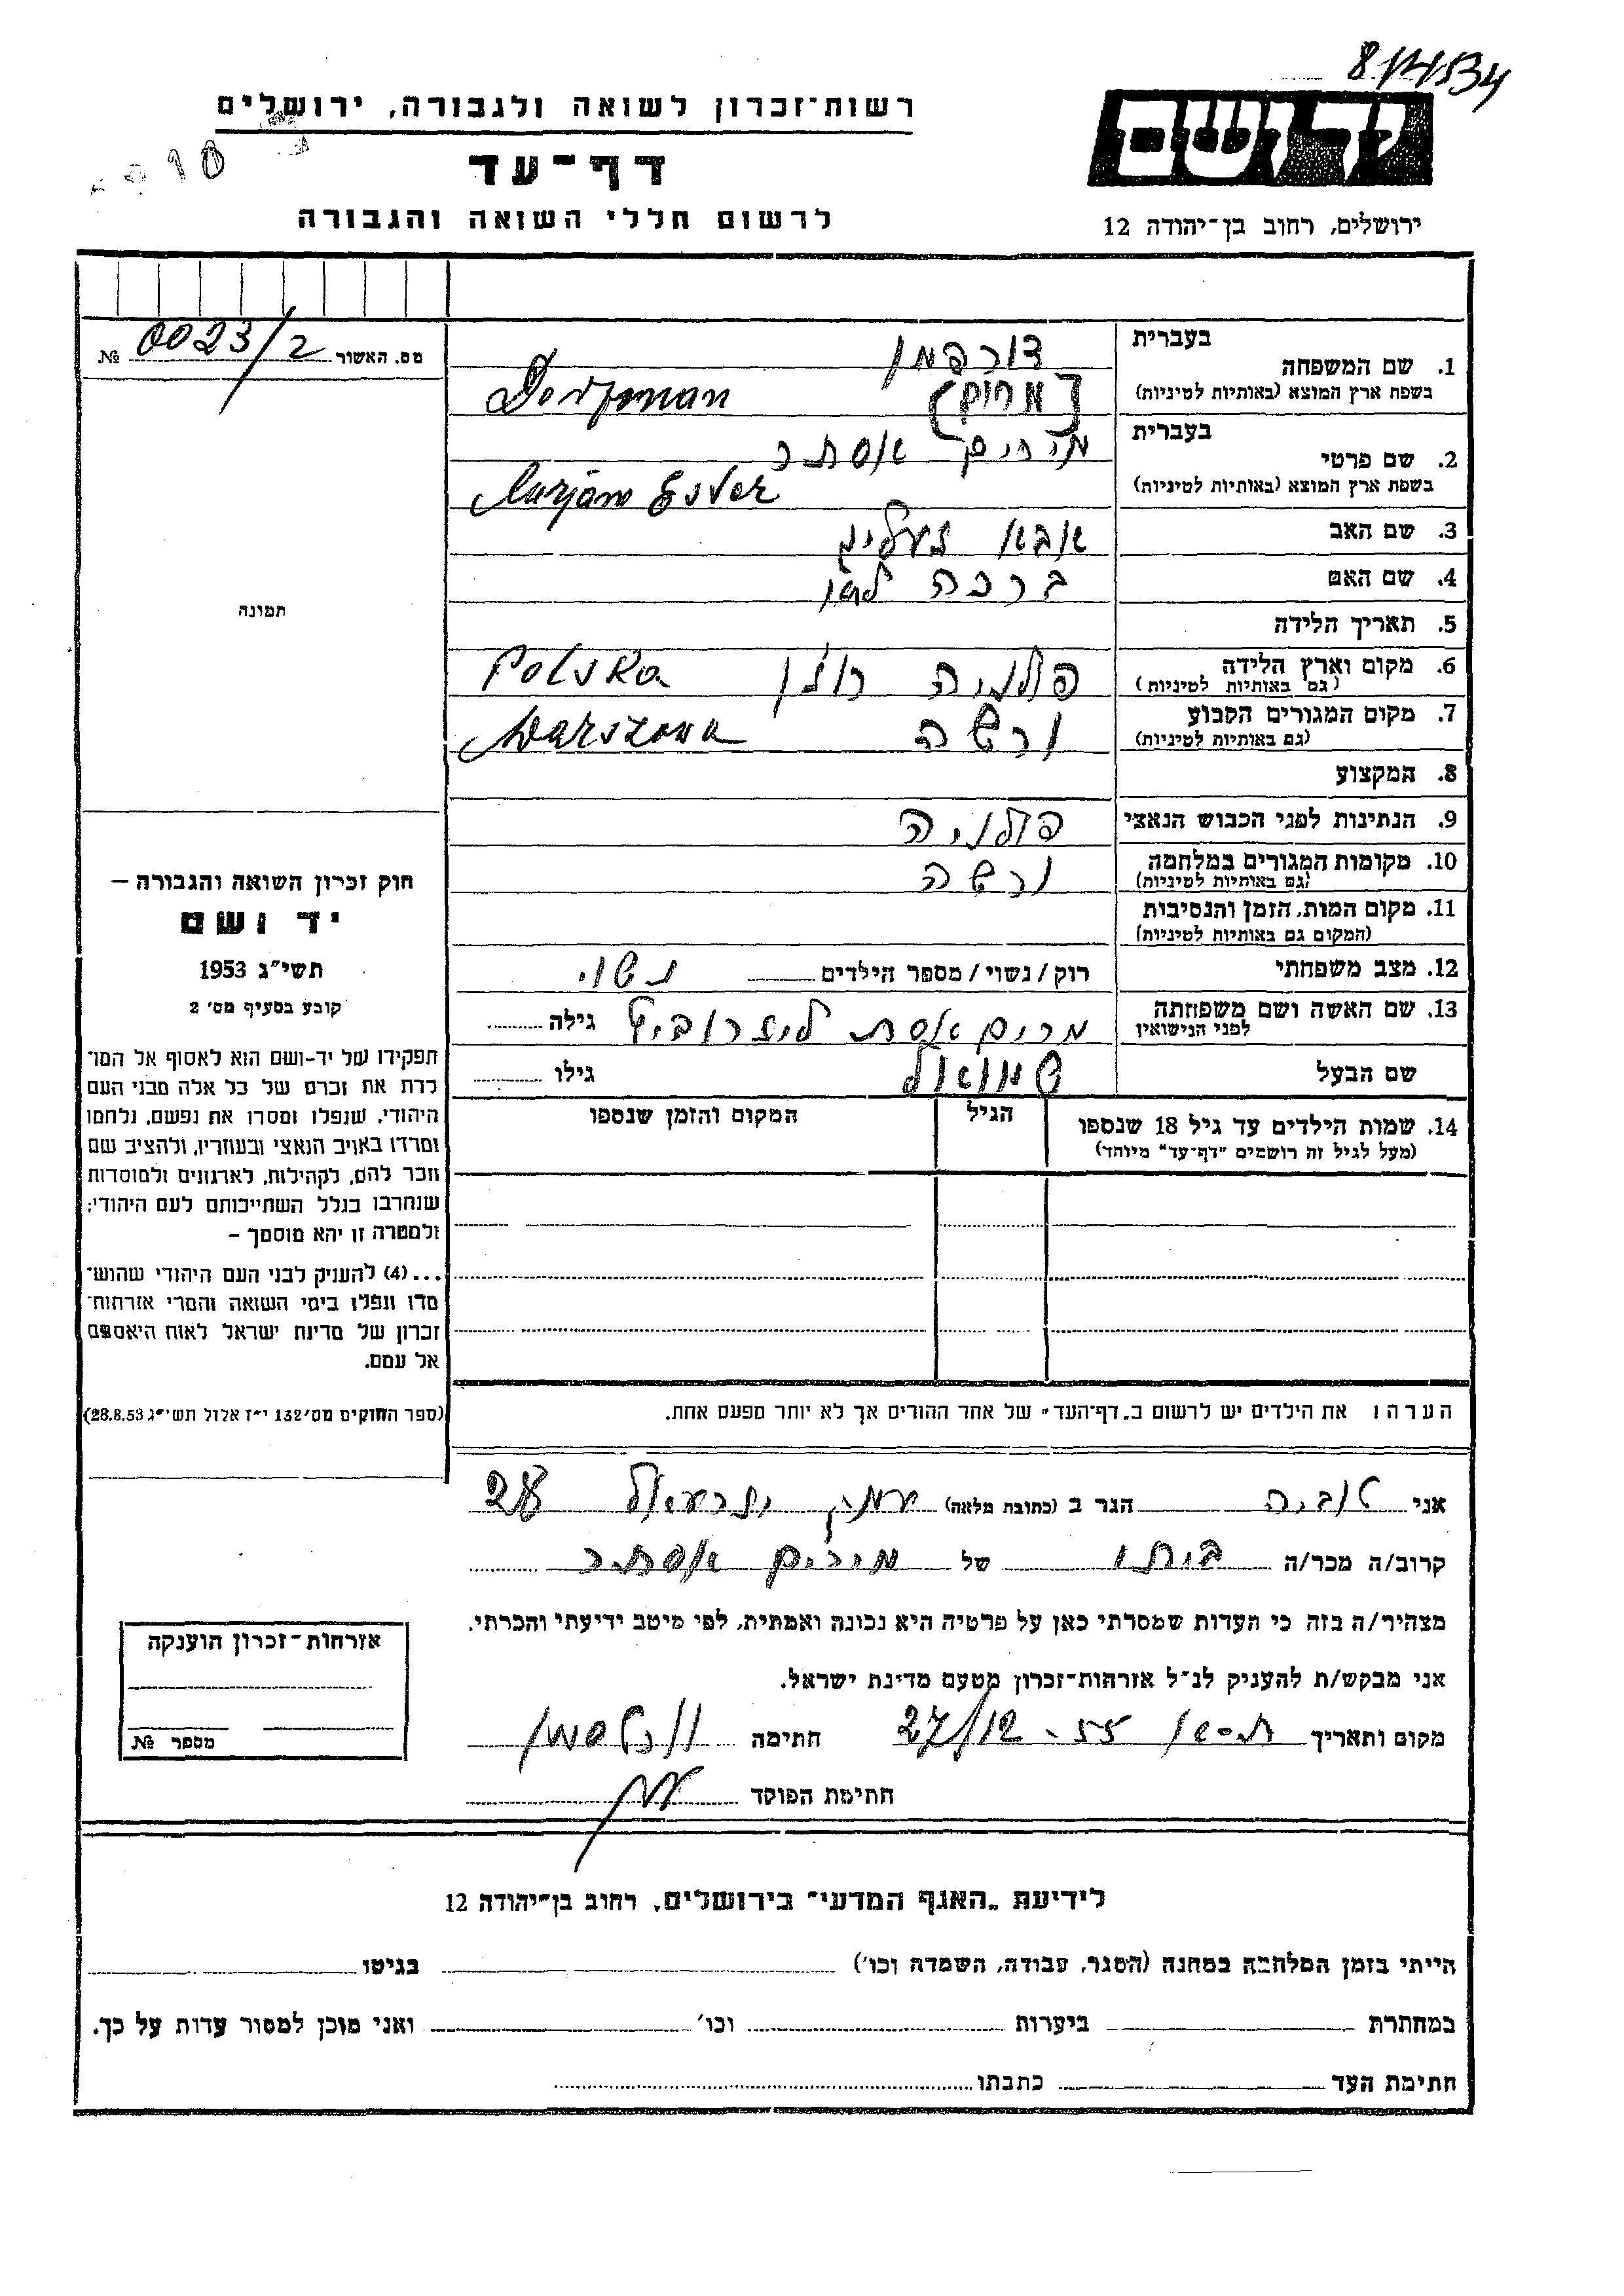 רשות־זכרון לשואה ולגבורה, ירושלים
דף־עד
לרשום חללי השואה והגבורה
יד ושם
ירושלים, רחוב בן־יהודה 12
מס. האשור 0023/2 №
בעברית
1. שם המשפחה דורפמן
(בשפת ארץ המוצא (באותיות לטיניות) Dorfman
בעברית
2. שם פרטי מירים אסתר
(בשפת ארץ המוצא (באותיות לטיניות) Mirjam Ester
3. שם האב אבא
4. שם האם ברכה
5. תאריך הלידה
6. מקום וארץ הלידה פולניה Polska
(גם באותיות לטיניות)
7. מקום המגורים הקבוע ורשה Warszawa
(גם באותיות לטיניות)
8. המקצוע
9. הנתינות לפני הכבוש הנאצי פולניה
10. מקומות המגורים במלחמה ורשה
(גם באותיות לטיניות)
11. מקום המות, הזמן והנסיבות
(המקום גם באותיות לטיניות)
12. מצב משפחתי רוק/נשוי/מספר הילדים נשוי
13. שם האשה ושם משפחתה מרים אסת לייזרוביץ גילה
לפני הנישואין
שם הבעל שמואל גילו
14. שמות הילדים עד גיל 18 שנספו הגיל המקום והזמן שנספו
(מעל לגיל זה רושמים "דף־עד" מיוחד)
הערה: את הילדים יש לרשום ב„דף־העד" של אחד ההורים אך לא יותר מפעם אחת.
תמונה
חוק זכרון השואה והגבורה –
יד ושם
תשי"ג 1953
קובע בסעיף מס' 2
תפקידו של יד-ושם הוא לאסוף אל המו־
לדת את זכרם של כל אלה מבני העם
היהודי, שנפלו ומסרו את נפשם, נלחמו
ומרדו באויב הנאצי ובעוזריו, ולהציב שם
וזכר להם, לקהילות, לארגונים ולמוסדות
שנחרבו בגלל השתייכותם לעם היהודי;
ולמטרה זו יהא מוסמך –
...(4) להעניק לבני העם היהודי שהוש־
מדו ונפלו בימי השואה והמרי אזרחות־
זכרון של מדינת ישראל לאות היאספם
אל עמם.
(ספר החוקים מס' 132 י"ז אלול תשי"ג 28.8.53)
אני טוביה הגר ב (כתובת מלאה) עמק יזרעאל 28
קרוב/ה מכר/ה ביתו של מירים אסתר
מצהיר/ה בזה כי העדות שמסרתי כאן על פרטיה היא נכונה ואמתית, לפי מיטב ידיעתי והכרתי.
אני מבקש/ת להעניק לנ"ל אזרחות־זכרון מטעם מדינת ישראל.
מקום ותאריך 27/12-55 חתימה
חתימת הפוקד
אזרחות־זכרון הוענקה
מספר №
לידיעת „האגף המדעי" בירושלים, רחוב בן־יהודה 12
הייתי בזמן המלחמה במחנה (הסגר, עבודה, השמדה וכו') בגיטו
במחתרת ביערות וכו' ואני מוכן למסור עדות על כך.
חתימת העד כתבתו